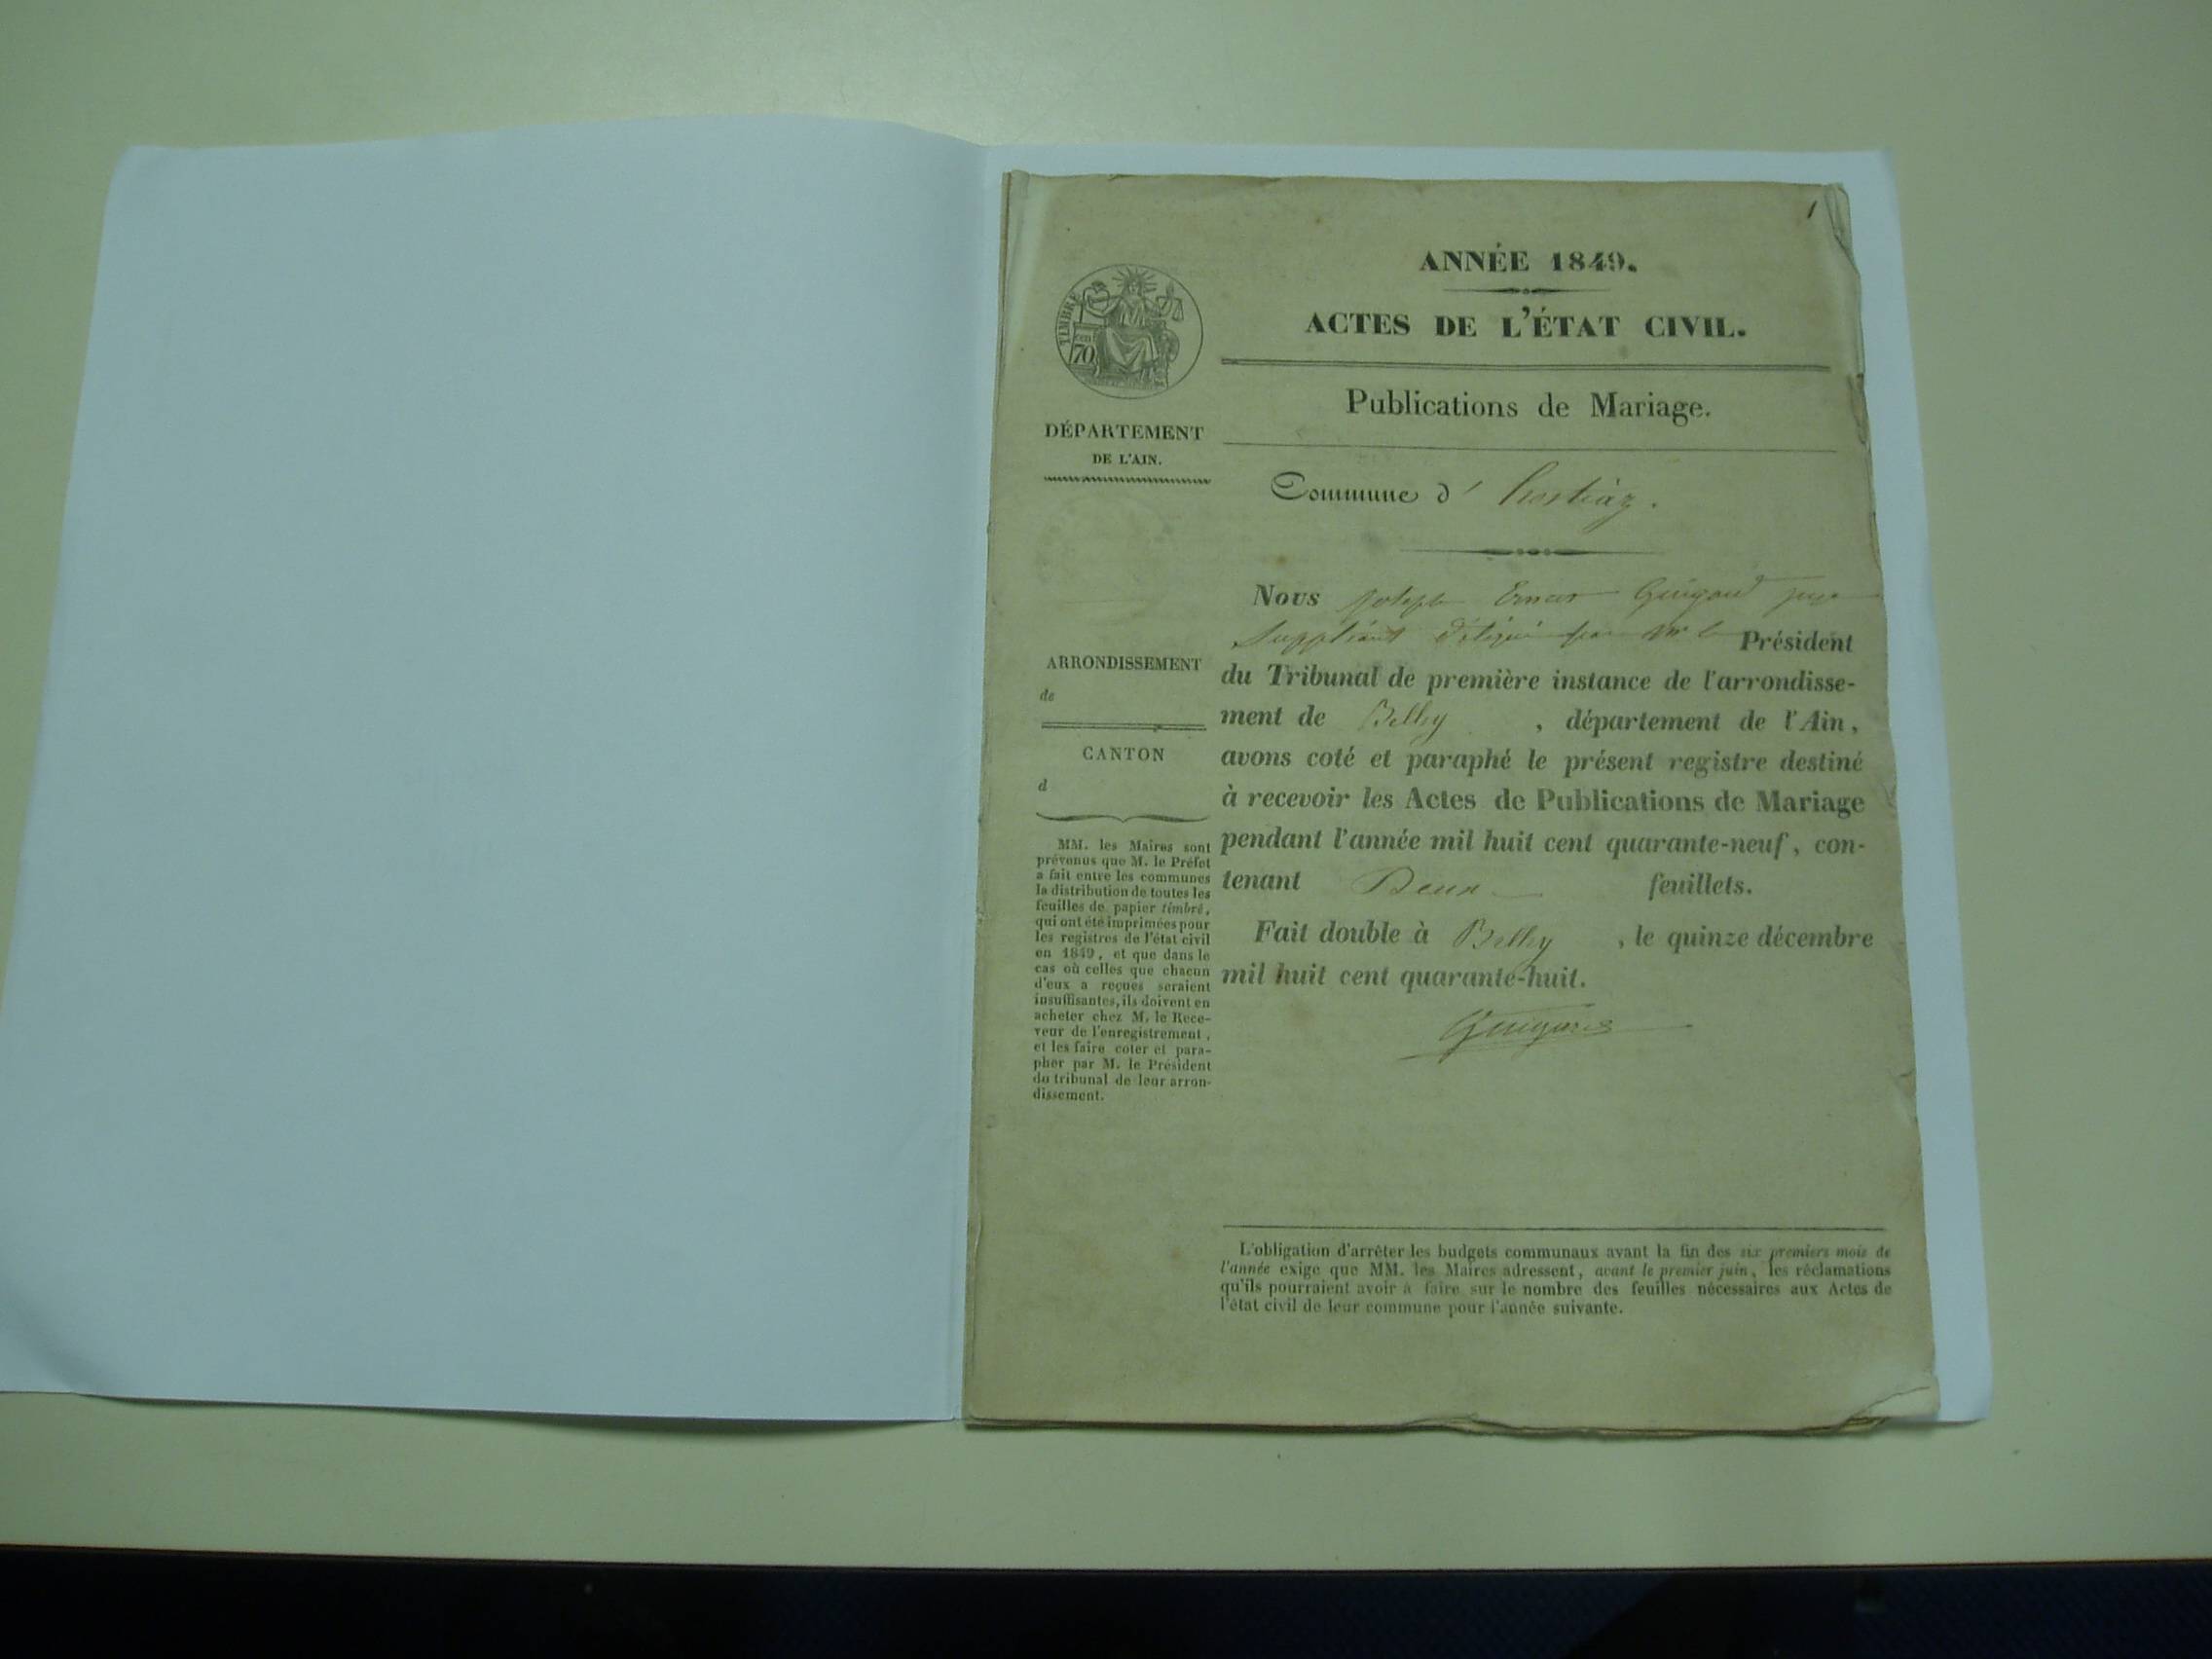 1
ANNÉE 1849.
ACTES DE L'ÉTAT CIVIL.
Publications de Mariage.
TIMBRE
70
DÉPARTEMENT
DE L'AIN.
Commune d' hostiaz.
Nous Joseph Guigard juge
Suppléant délégué par Mr le Président
du Tribunal de première instance de l'arrondisse-
ment de Belley , département de l'Ain,
avons coté et paraphé le présent registre destiné
à recevoir les Actes de Publications de Mariage
pendant l'année mil huit cent quarante-neuf, con-
tenant Deux feuillets.
Fait double à Belley , le quinze décembre
mil huit cent quarante-huit.
ARRONDISSEMENT
de
CANTON
d
MM. les Maires sont
prévenus que M. le Préfet
a fait entre les communes
la distribution de toutes les
feuilles de papier timbré,
qui ont été imprimées pour
les registres de l'état civil
en 1849, et que dans le
cas où celles que chacun
d'eux a reçues seraient
insuffisantes, ils doivent en
acheter chez M. le Rece-
veur de l'enregistrement,
et les faire coter et para-
pher par M. le Président
du tribunal de leur arron-
dissement.
L'obligation d'arrêter les budgets communaux avant la fin des six premiers mois de
l'année exige que MM. les Maires adressent, avant le premier juin, les réclamations
qu'ils pourraient avoir à faire sur le nombre des feuilles nécessaires aux Actes de
l'état civil de leur commune pour l'année suivante.